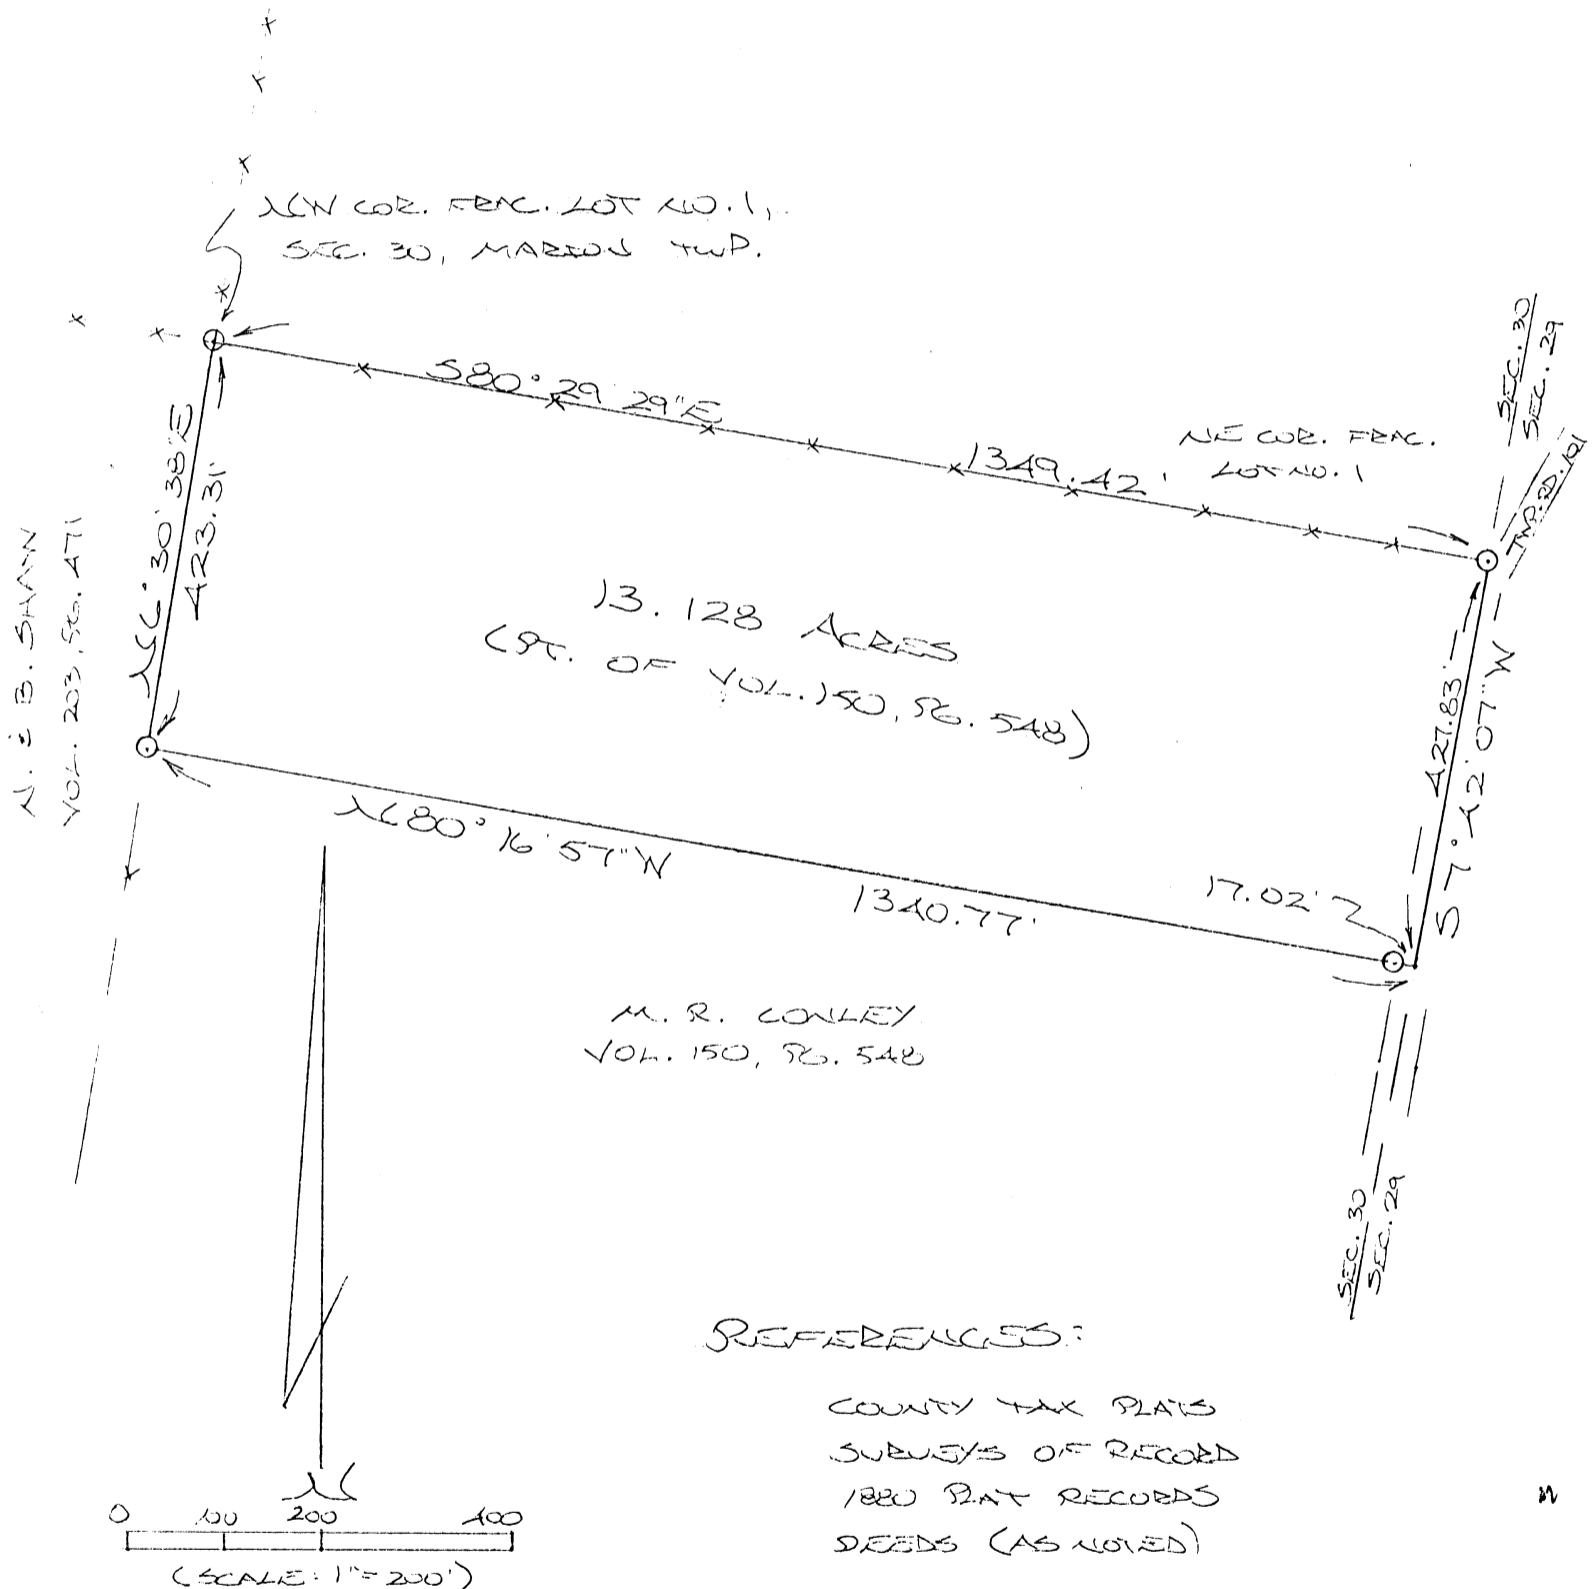 NW COR. FRAC. LOT NO. 1,
SEC. 30, MARION TWP.
S80° 29' 29"E
1349.42'
NE COR. FRAC.
LOT NO. 1
SEC. 30
SEC. 29
TWP. RD. 191
N6° 30' 38"E
423.31'
N. & B. SHAWN
VOL. 203, PG. 471
13.128 ACRES
(PT. OF VOL. 150, PG. 548)
427.83'
S7° 42' 07"W
N80° 16' 57"W
1340.77'
17.02'
M. R. CONLEY
VOL. 150, PG. 548
SEC. 30
SEC. 29
REFERENCES:
COUNTY TAX PLATS
SURVEYS OF RECORD
1880 PLAT RECORDS
DEEDS (AS NOTED)
N
0 100 200 400
(SCALE: 1"=200')